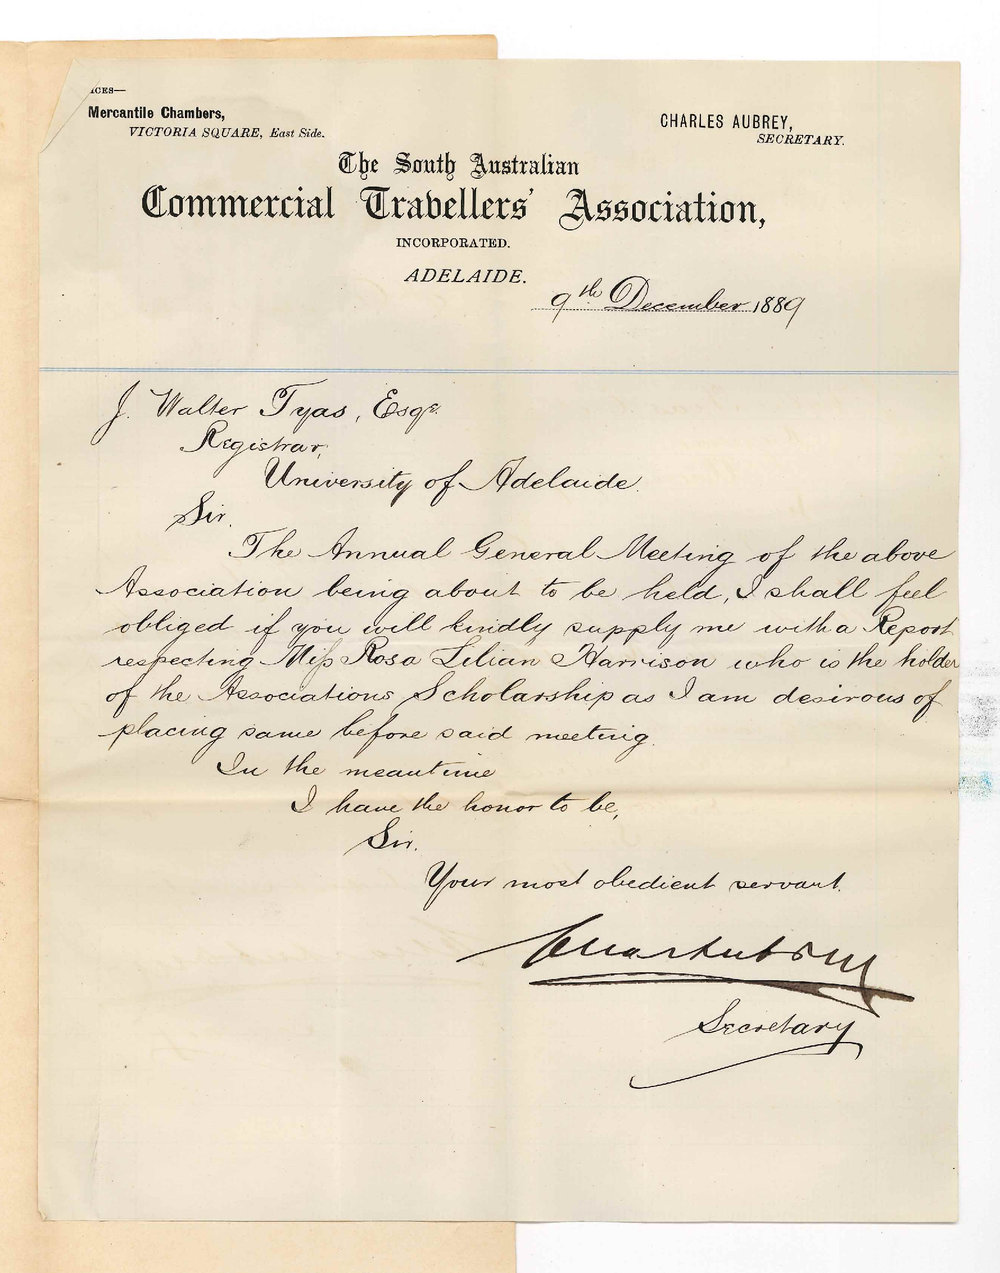 ICES—
Mercantile Chambers,
VICTORIA SQUARE, East Side.
CHARLES AUBREY,
SECRETARY.
The South Australian
Commercial Travellers' Association,
INCORPORATED.
ADELAIDE.
9th December 1889
J. Walter Tyas, Esqr.
Registrar,
University of Adelaide.
Sir.
The Annual General Meeting of the above
Association being about to be held, I shall feel
obliged if you will kindly supply me with a Report
respecting Miss Rosa Lilian Harrison who is the holder
of the Associations Scholarship as I am desirous of
placing same before said meeting.
In the meantime
I have the honor to be,
Sir.
Your most obedient servant.
Chas Aubrey
Secretary